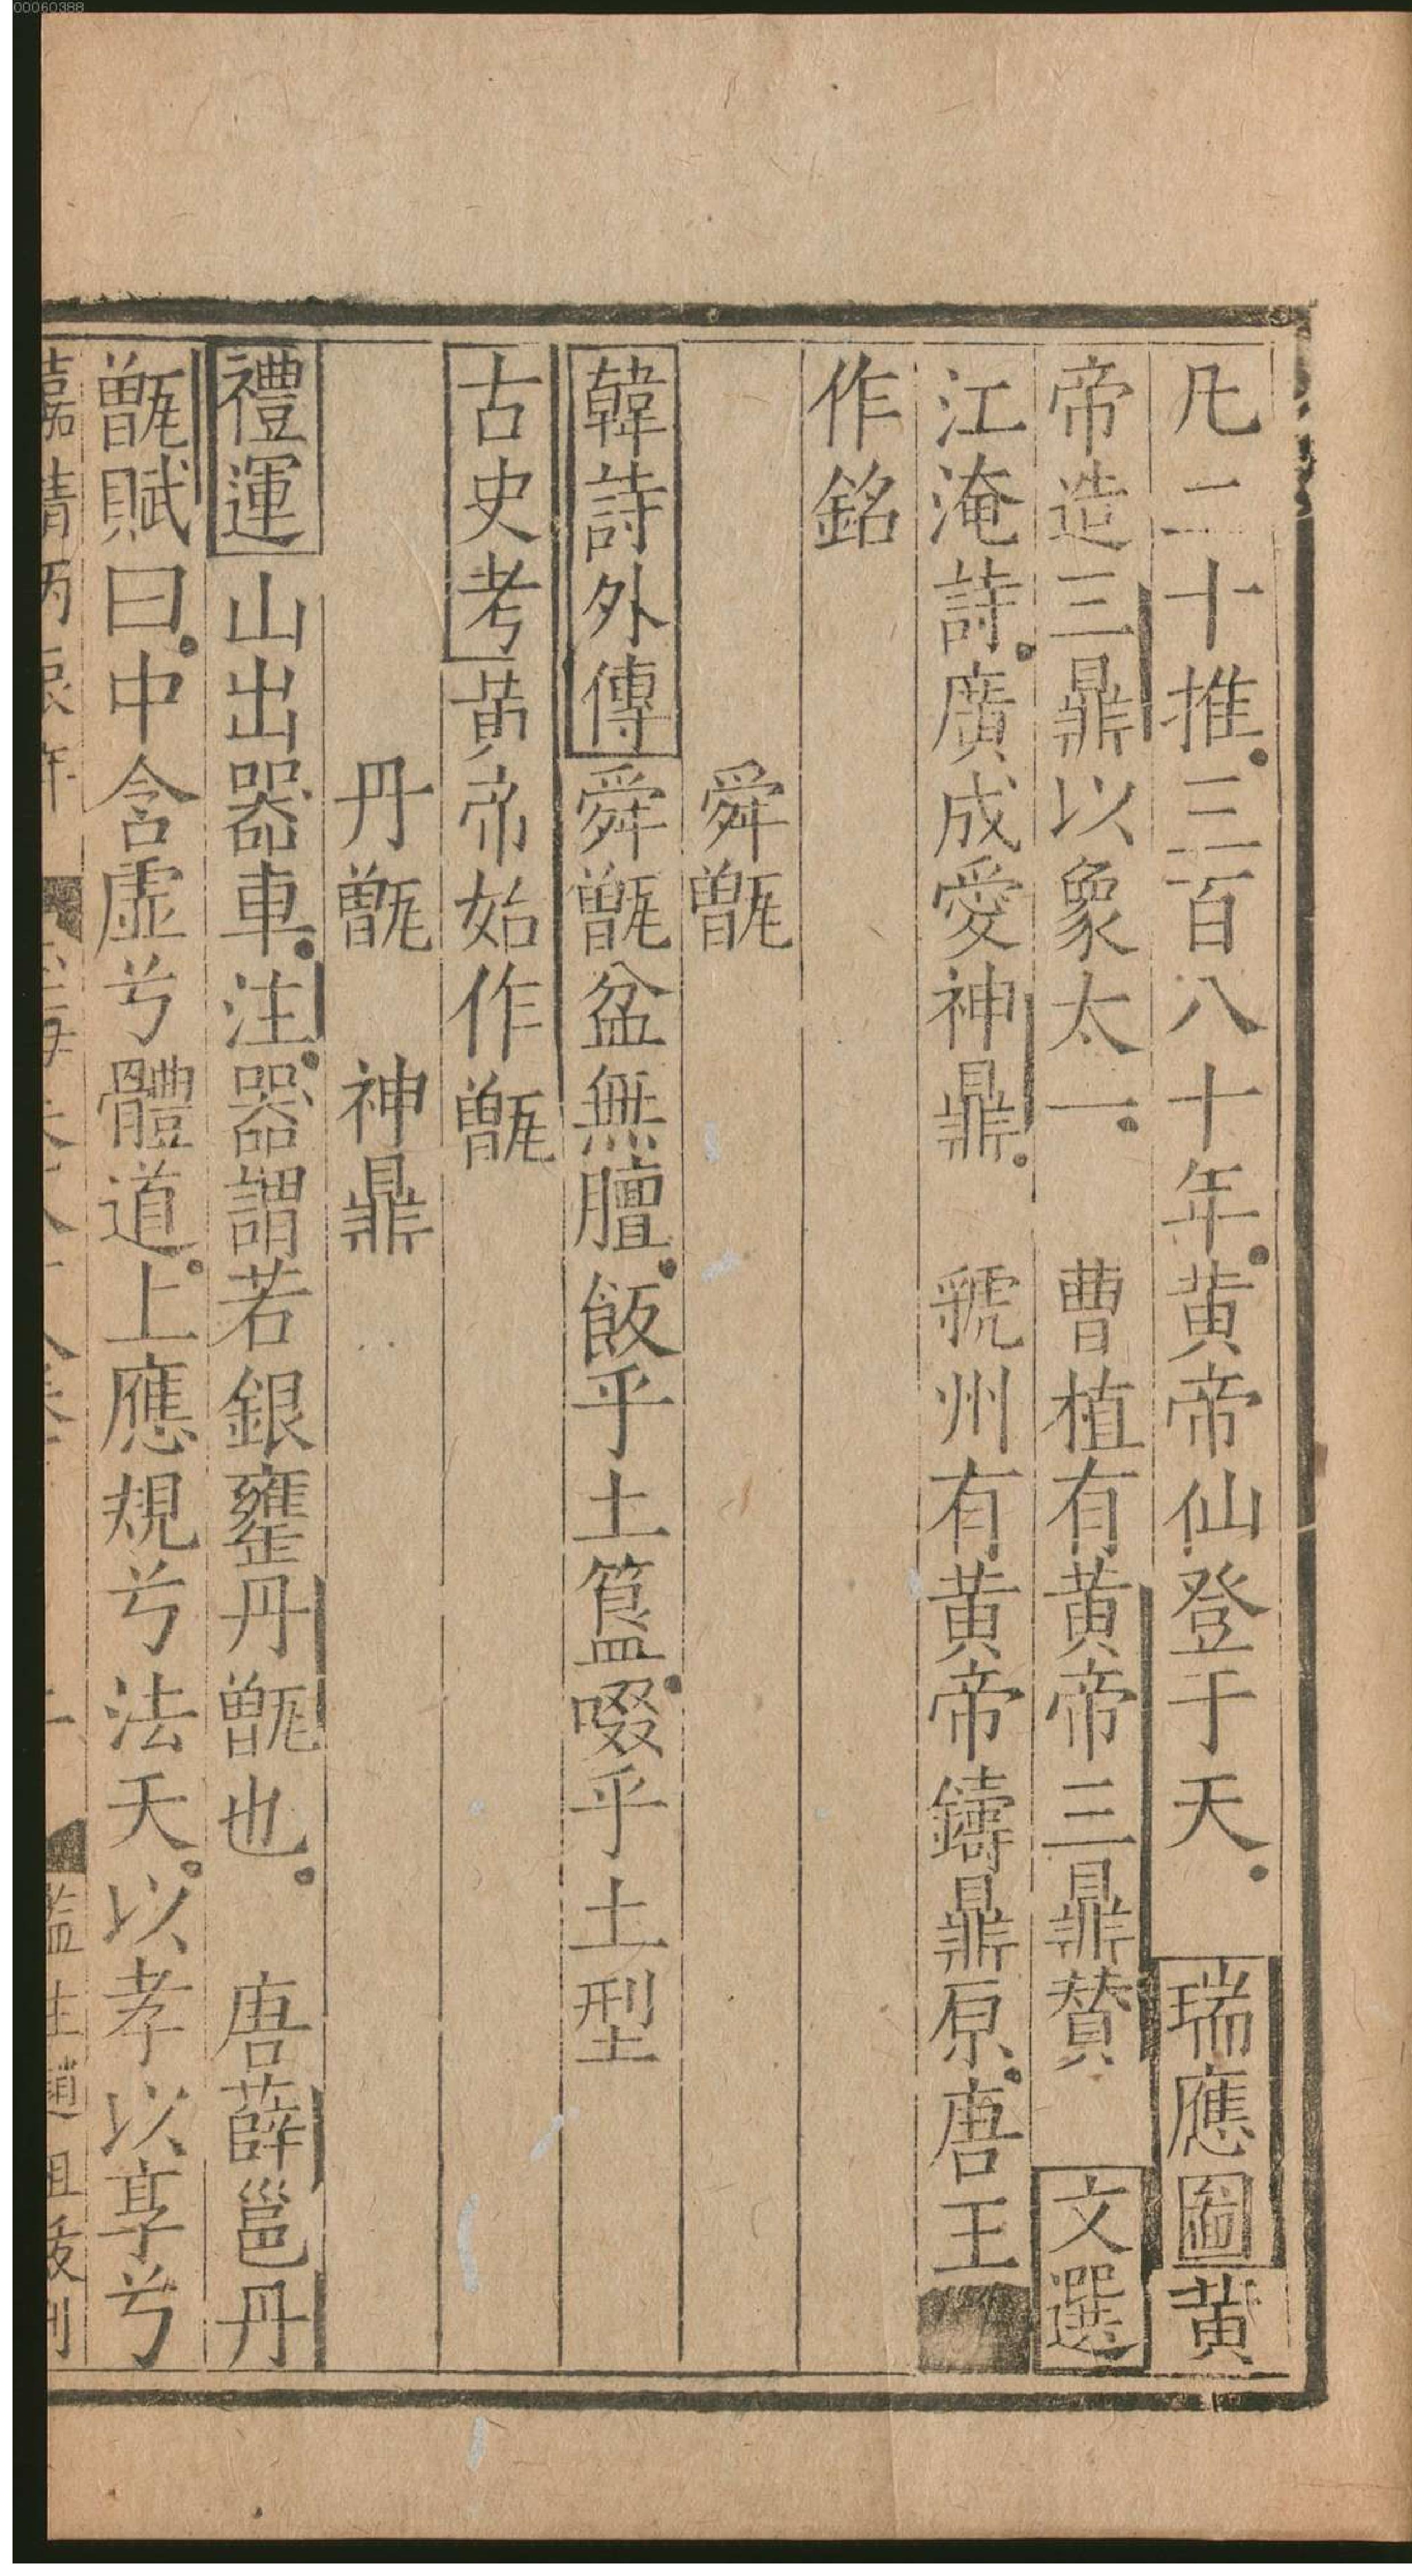 凡二十推三百八十年黄帝仙登于天 瑞應圖黄
帝造三鼎以象太一 曹植有黄帝三鼎賛 文選
江淹詩廣成愛神鼎 虢州有黄帝鑄鼎原唐王
作銘
舜甑
韓詩外傳舜甑盆無膻飯乎土簋啜乎土型
古史考黄帝始作甑
丹甑 神鼎
禮運山出器車注器謂若銀甕丹甑也 唐薛邕丹
甑賦曰中含虚兮體道上應規兮法天以孝以享兮
嘉靖丙辰年
監生趙祖
刊
00060388